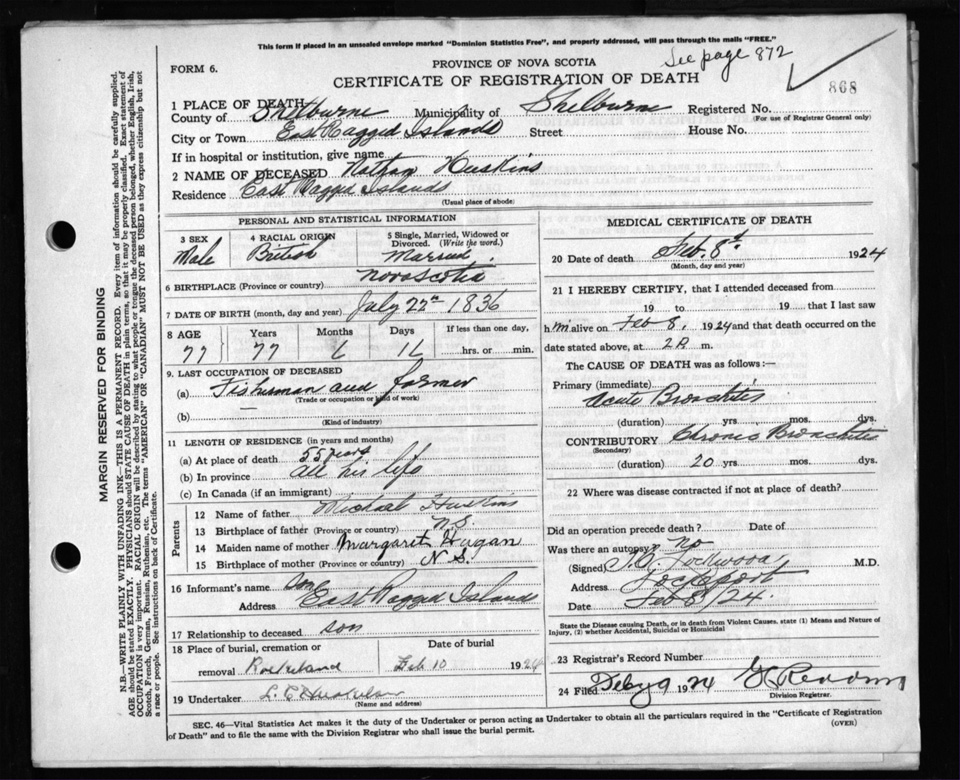 This form if placed in an unsealed envelope marked "Dominion Statistics Free", and properly addressed, will pass through the mails "FREE."
See page 872
FORM 6.
PROVINCE OF NOVA SCOTIA
CERTIFICATE OF REGISTRATION OF DEATH
868
1 PLACE OF DEATH
County of Shelburne Municipality of Shelburne Registered No.
(For use of Registrar General only)
City or Town East Ragged Islands Street House No.
If in hospital or institution, give name
2 NAME OF DECEASED Nathan Huskins
Residence East Ragged Islands
(Usual place of abode)
PERSONAL AND STATISTICAL INFORMATION
3 SEX 4 RACIAL ORIGIN 5 Single, Married, Widowed or Divorced. (Write the word.)
Male British Married.
6 BIRTHPLACE (Province or country) Nova Scotia
7 DATE OF BIRTH (month, day and year) July 22n 1836
8 AGE Years Months Days If less than one day,
77 77 6 16 hrs. or min.
9. LAST OCCUPATION OF DECEASED
(a) Fisherman and farmer
(Trade or occupation or kind of work)
(b) —
(Kind of industry)
11 LENGTH OF RESIDENCE (in years and months)
(a) At place of death 55 years
(b) In province all his life
(c) In Canada (if an immigrant)
Parents
12 Name of father Michael Huskins
13 Birthplace of father (Province or country) N.S.
14 Maiden name of mother Margaret Hagan
15 Birthplace of mother (Province or country) N S.
16 Informant's name
Address East Ragged Islands
17 Relationship to deceased son
18 Place of burial, cremation or removal Date of burial
Rockland Feb 10 1924
19 Undertaker L. C
(Name and address)
MEDICAL CERTIFICATE OF DEATH
20 Date of death Feb. 8th. 1924
(Month, day and year)
21 I HEREBY CERTIFY, that I attended deceased from
19 to 19 that I last saw
h im alive on Feb 8, 1924 and that death occurred on the
date stated above, at 2 A m.
The CAUSE OF DEATH was as follows:—
Primary (immediate)
Acute Bronchitis
(duration) yrs. mos. dys.
CONTRIBUTORY Chronic Bronchitis
(Secondary)
(duration) 20 yrs. mos. dys.
22 Where was disease contracted if not at place of death?
Did an operation precede death? Date of
Was there an autopsy? no
(Signed) Lockwood M.D.
Address Lockeport
Date Feb 8/24.
State the Disease causing Death, or in death from Violent Causes, state (1) Means and Nature of Injury, (2) whether Accidental, Suicidal or Homicidal
23 Registrar's Record Number
24 Filed Feby 9 1924
Division Registrar.
SEC. 46—Vital Statistics Act makes it the duty of the Undertaker or person acting as Undertaker to obtain all the particulars required in the "Certificate of Registration
of Death" and to file the same with the Division Registrar who shall issue the burial permit. (OVER)
MARGIN RESERVED FOR BINDING
N.B.—WRITE PLAINLY WITH UNFADING INK—THIS IS A PERMANENT RECORD. Every item of information should be carefully supplied.
AGE should be stated EXACTLY. PHYSICIANS should STATE CAUSE OF DEATH in plain terms, so that it may be properly classified. Exact statement of
OCCUPATION is very important. RACIAL ORIGIN will be described by stating to what people or tongue the deceased person belonged, whether English, Irish,
Scotch, French, German, Russian, Ruthenian, etc. The terms "AMERICAN" OR "CANADIAN" MUST NOT BE USED as they express citizenship but not
a race or people. See instructions on back of Certificate.